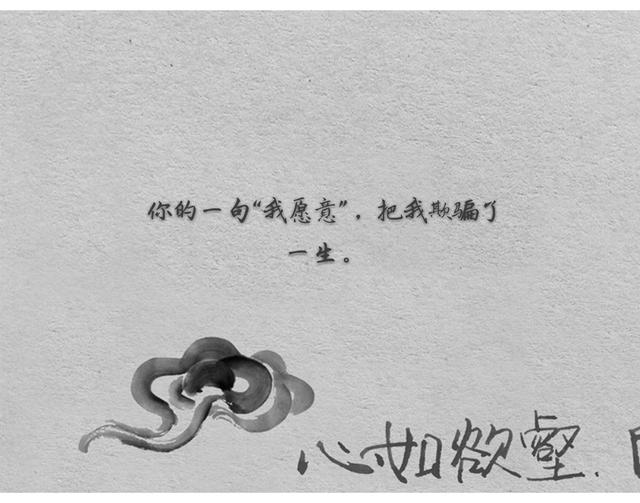 你的一句“我愿意”，把我欺骗了
一生。
心如欲壑，